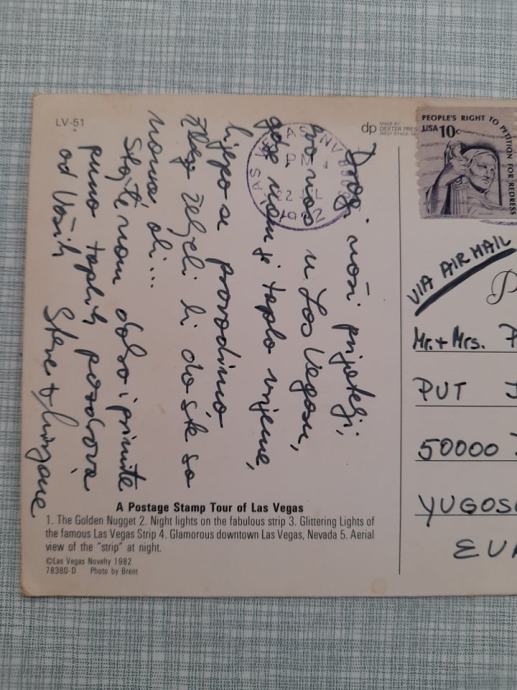 LV-51
dp MADE BY DEXTER PRESS
LAS VEGAS NV
PM
22
1982
PEOPLE'S RIGHT TO PETITION FOR REDRESS
USA 10c
Dragi naši prijatelji,
evo nas u Las Vegasu,
gdje nam je toplo vrijeme,
lijepo se provodimo
željeli bi da ste sa
nama, ali...
Sretni nam dalso i primite
puno toplih pozdrava
od Vaših Steve &
VIA AIR MAIL
Mr. + Mrs.
PUT
50000
YUGOS
EU
A Postage Stamp Tour of Las Vegas
1. The Golden Nugget 2. Night lights on the fabulous strip 3. Glittering Lights of
the famous Las Vegas Strip 4. Glamorous downtown Las Vegas, Nevada 5. Aerial
view of the "strip" at night.
©Las Vegas Novelty 1982
78380-D Photo by Brent